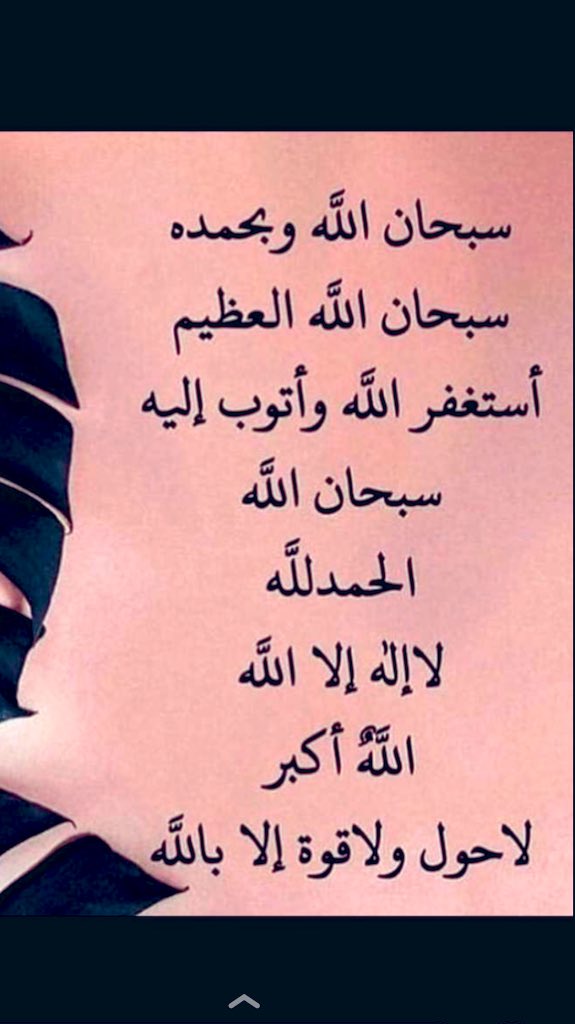 سبحان اللَّه وبحمده
سبحان اللَّه العظيم
أستغفر اللَّه وأتوب إليه
سبحان اللَّه
الحمدللَّه
لاإلٰه إلا اللَّه
اللَّهٌ أكبر
لاحول ولاقوة إلا باللَّه